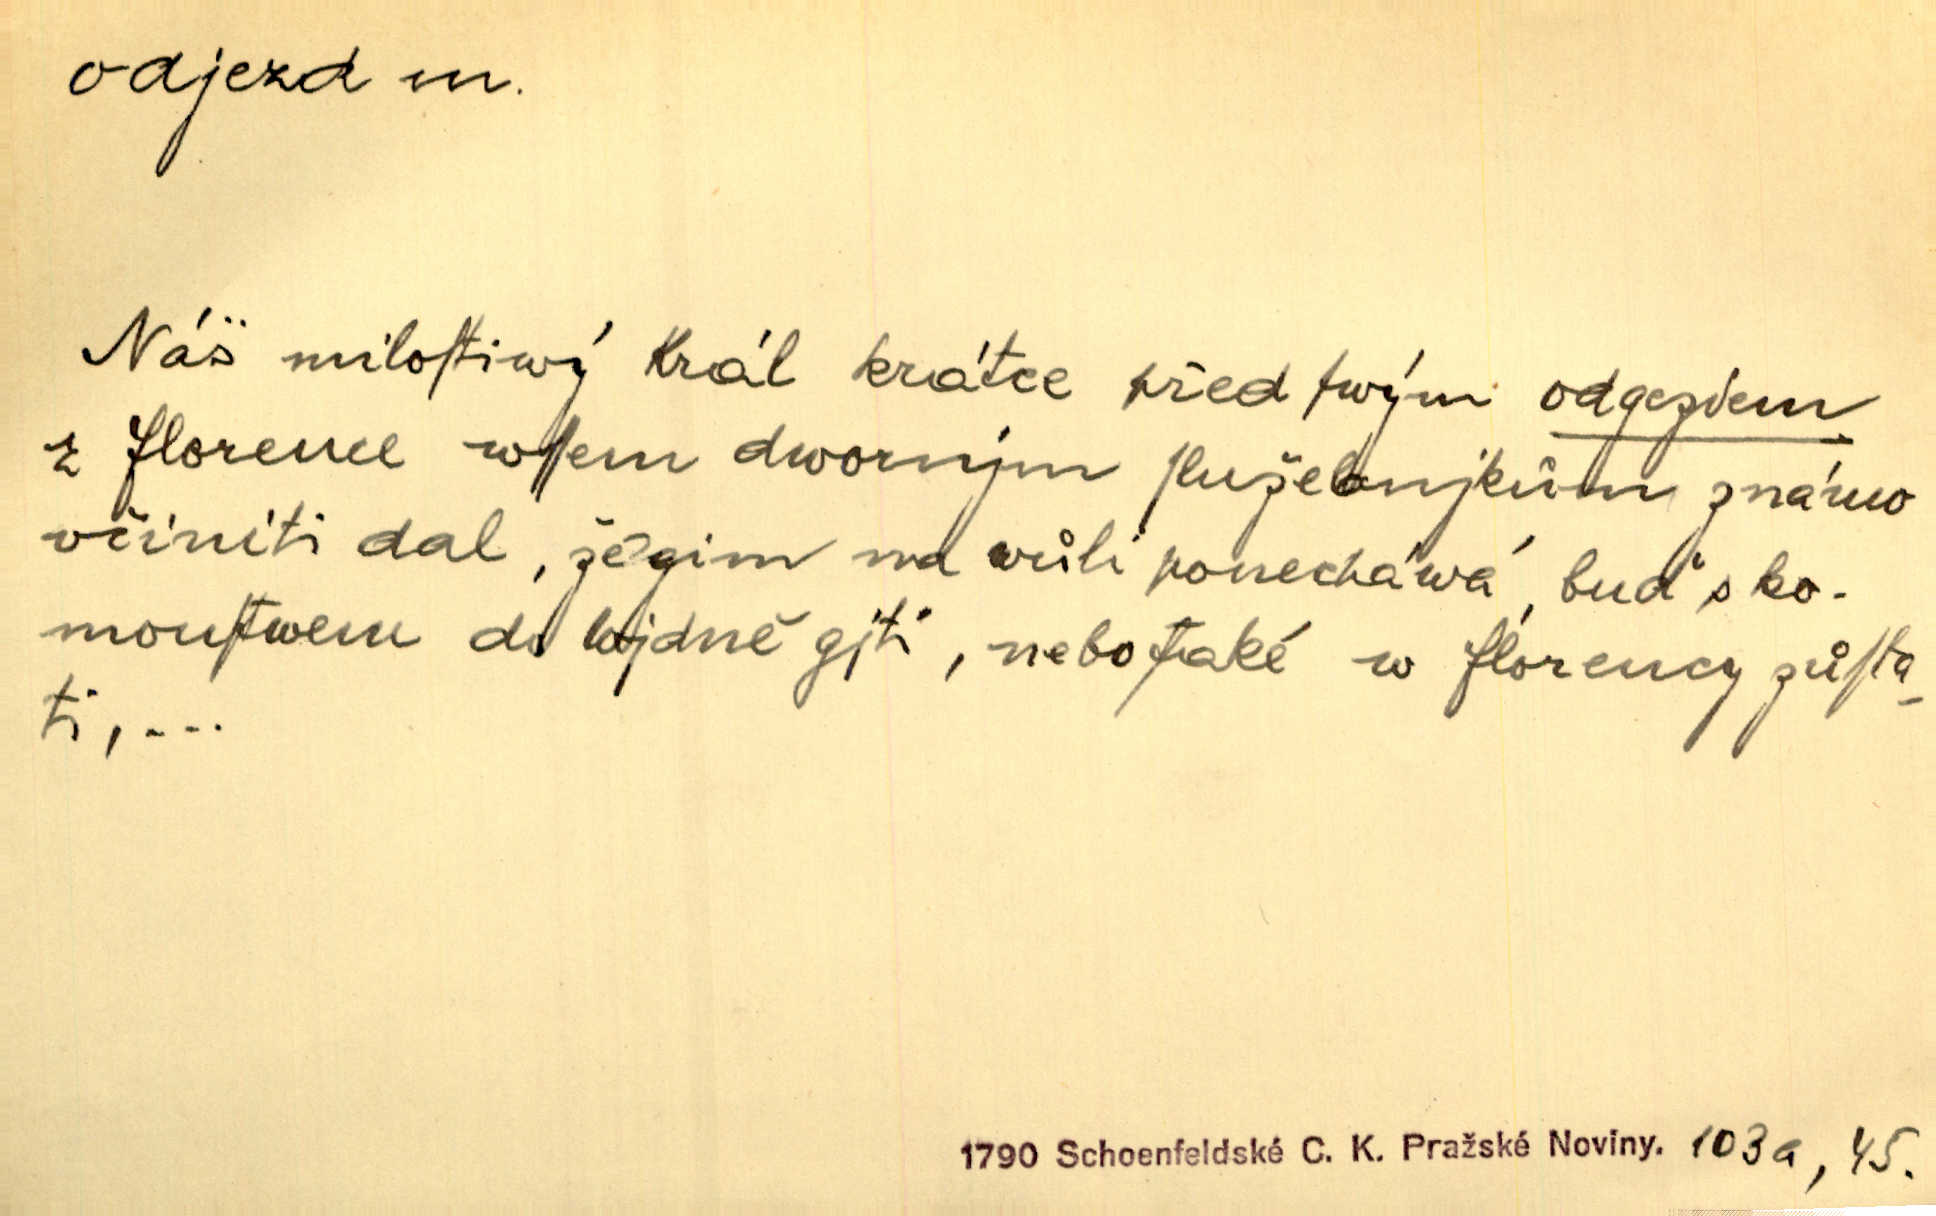 odjezd m.
Náš miloſtiwý Král krátce před ſwým odgezdem
z Florence wſſem dworným ſlužebnjkům známo
včiniti dal, že gim na wůli ponecháwá, buď s ko-
monſtwem do Wjdně gjti, nebo také w Florency zůſta-
ti, ....
1790 Schoenfeldské C. K. Pražské Noviny. 103a, 45.